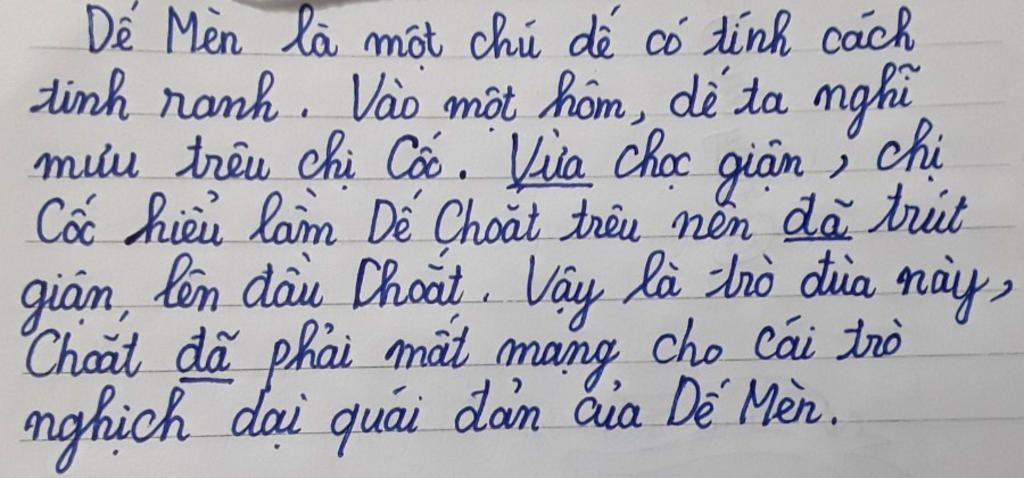 Dế Mèn là một chú dế có tính cách
tinh ranh. Vào một hôm, dế ta nghĩ
mưu trêu chị Cốc. Vừa chọc giận, chị
Cốc hiểu lầm Dế Choắt trêu nên đã trút
giận, lên đầu Choắt. Vậy là trò đùa này,
Choắt đã phải mất mạng cho cái trò
nghịch dại quái đản của Dế Mèn.